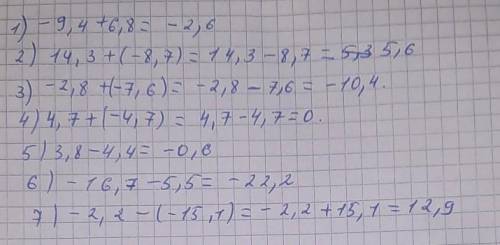 1) -9,4 +6,8 = -2,6
2) 14,3 + (-8,7) = 14,3 - 8,7 = 5,6
3) -2,8 +(-7,6) = -2,8 - 7,6 = -10,4.
4) 4,7 + (-4,7) = 4,7 - 4,7 = 0.
5) 3,8 - 4,4 = -0,6
6) -16,7 - 5,5 = -22,2
7) -2,2 - (-15,1) = -2,2 + 15,1 = 12,9